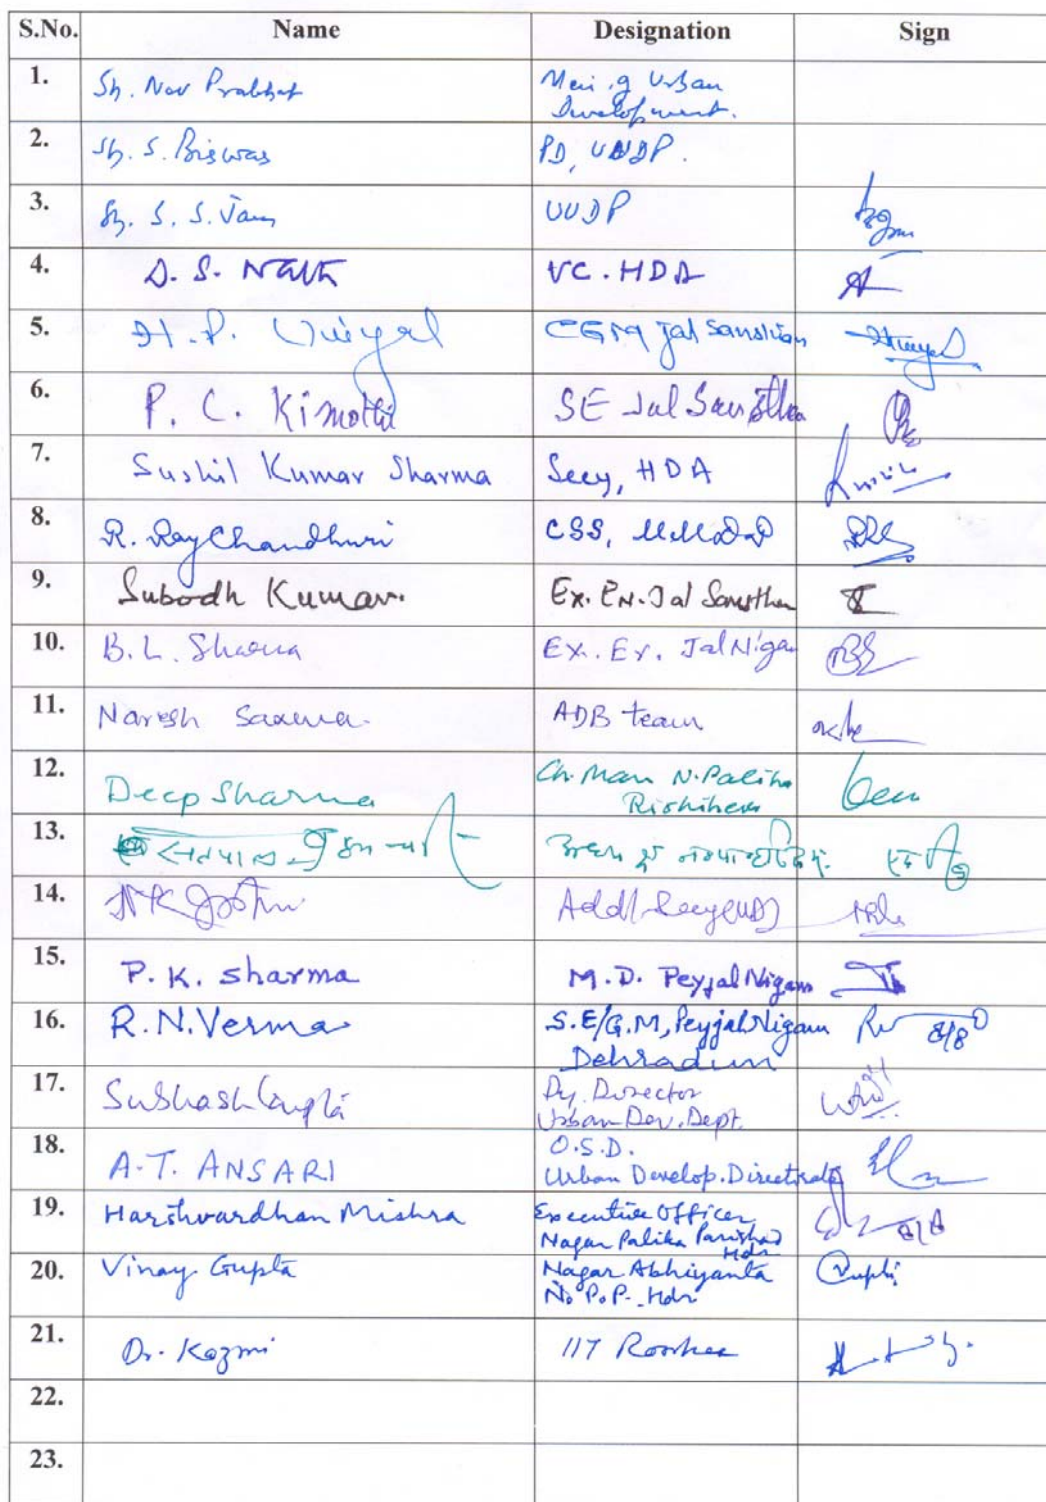 S.No. Name Designation Sign
1. Sh. Nav Prabhat Urban
Development.
2. Sh. S. Biswas PD, UUDP.
3. Sh. S. S. Jain UUDP
4. D. S. VC. HDA
5. H. P. Uniyal CGM Jal Sansthan
6. P. C. Kimothi SE Jal Sansthan
7. Sushil Kumar Sharma Secy, HDA
8. R. RayChaudhuri CSS,
9. Subodh Kumar. Ex. En. Jal Sansthan
10. B. L. Sharma Ex. Er. Jal Nigam
11. Naresh Saxena. ADB team
12. Deep Sharma Ch. Man N. Palika
13.
14. Addl Secy (UD)
15. P. K. Sharma M. D. Peyjal Nigam
16. R. N. Verma S.E/G.M, Peyjal Nigam 8/8
Dehradun
17. Subhash Gupta Dy. Director
Urban Dev. Dept.
18. A. T. ANSARI O.S.D.
Urban Develop. Directorate
19. Harshvardhan Mishra Executive Officer
Nagar Palika Parishad
Hdr
20. Vinay Gupta Nagar Abhiyanta
N. P. P. Hdr
21. Dr. Kazmi IIT Roorkee
22.
23.